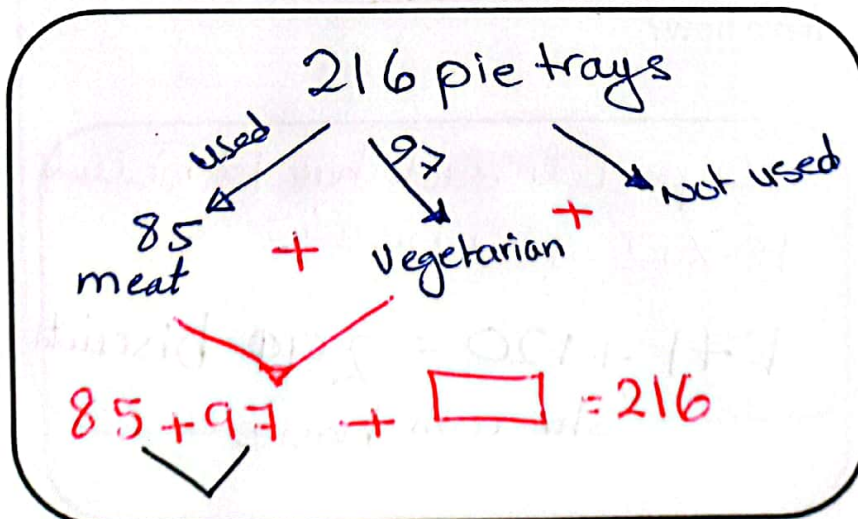 216 pie trays
used
97
Not used
85
meat
+
vegetarian
+
85 + 97 + = 216